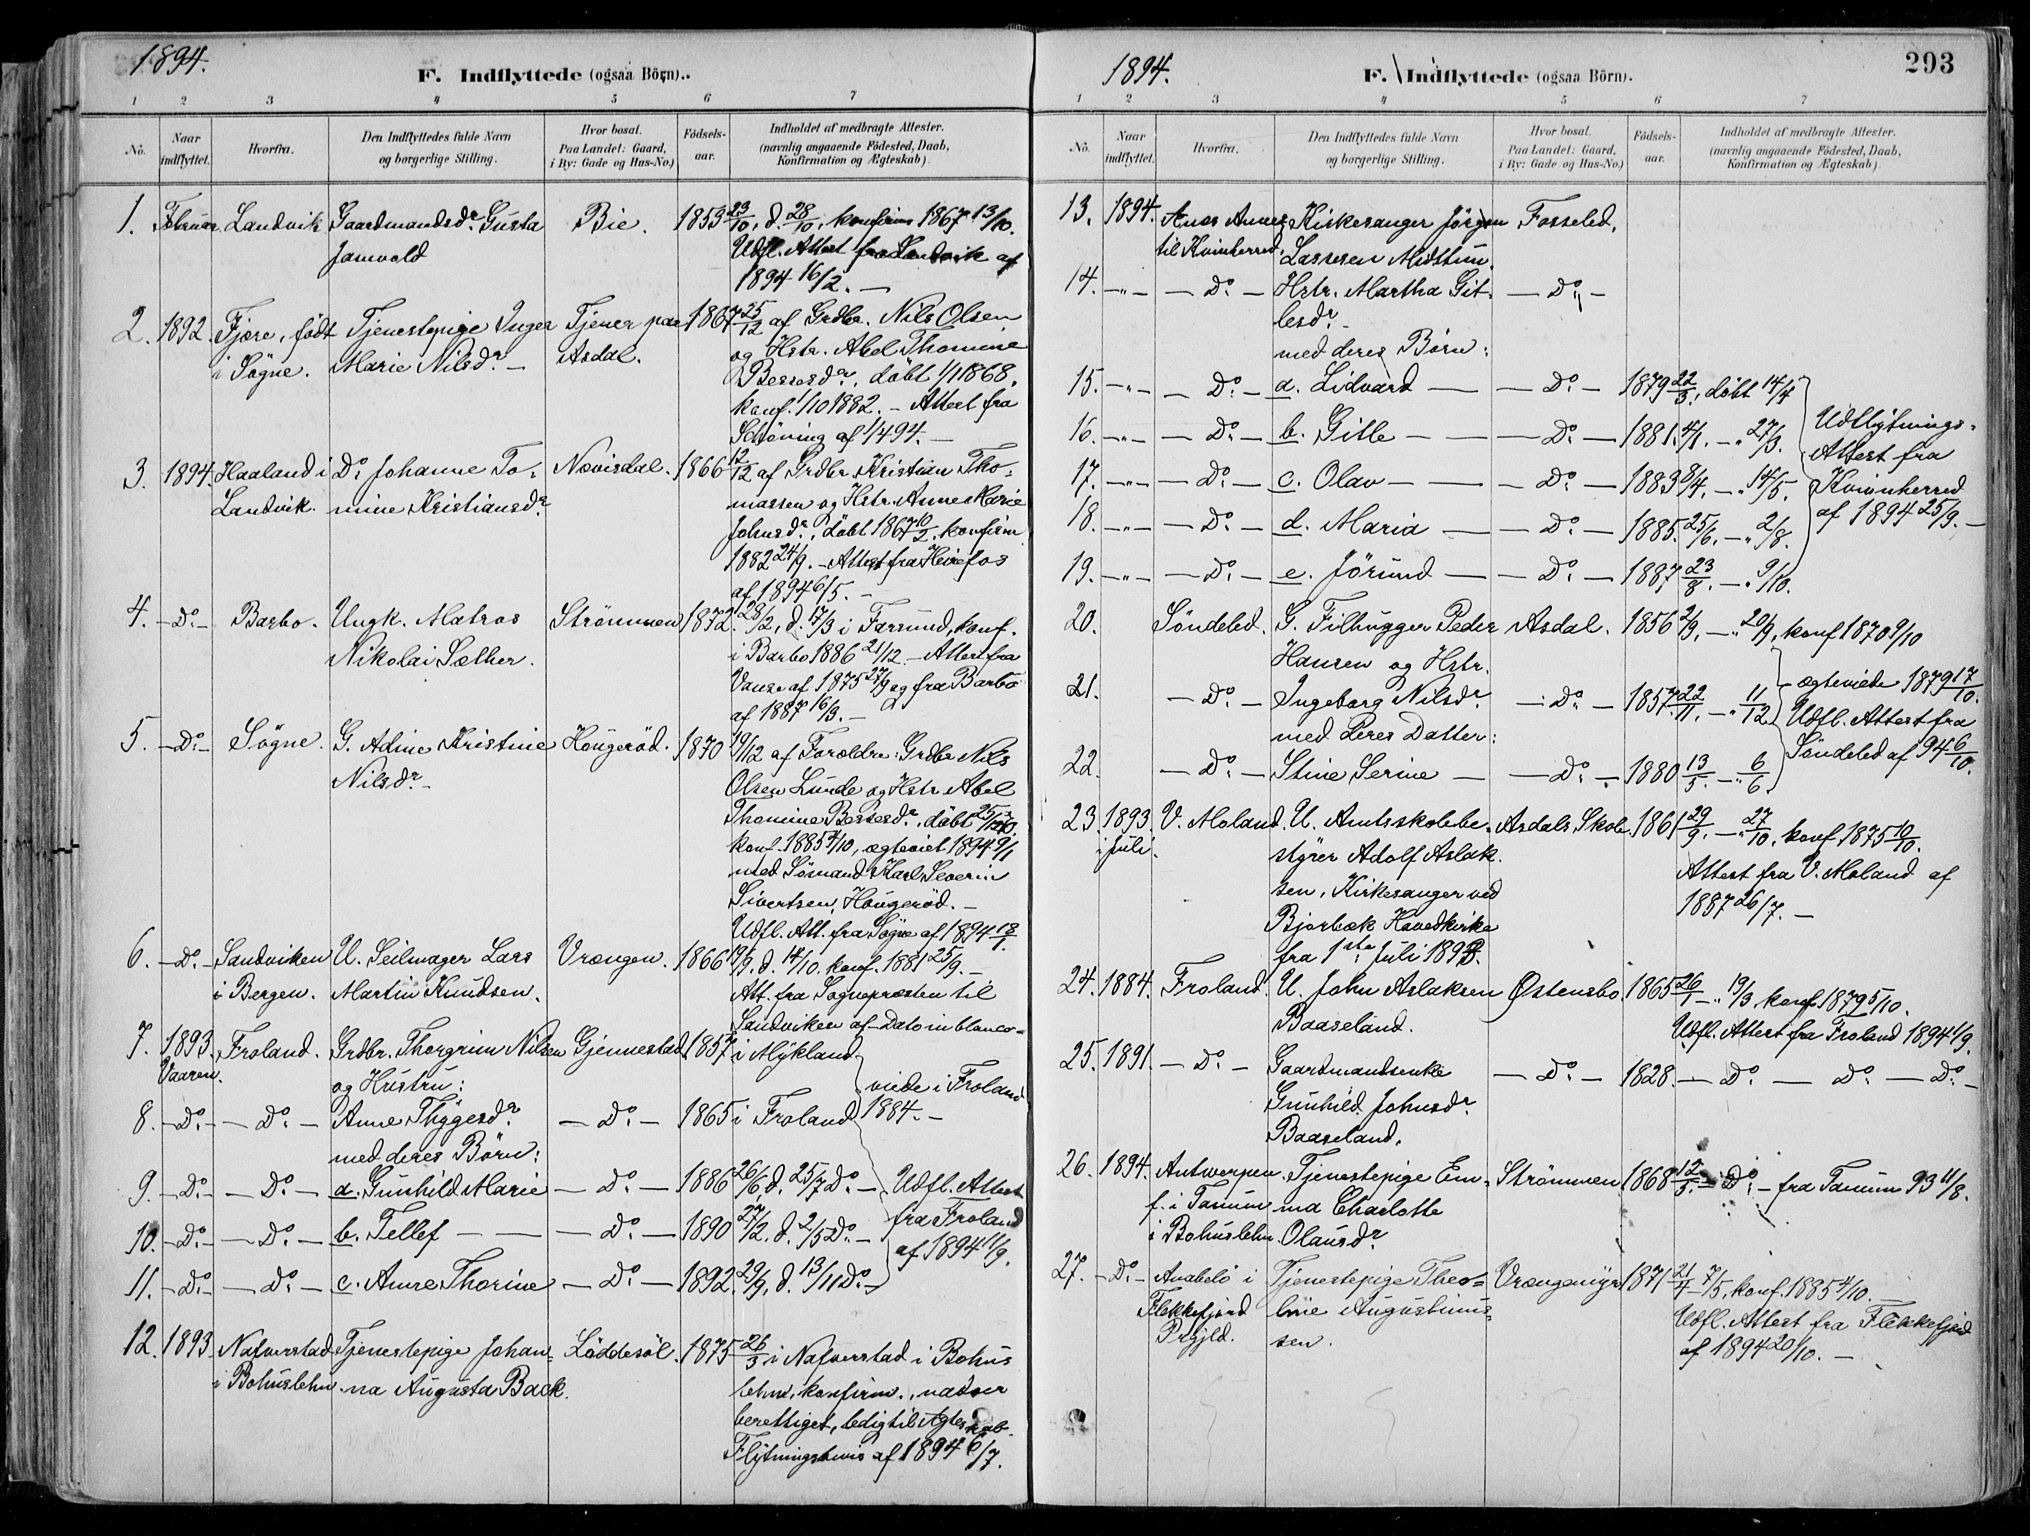 1894.
F. Indflyttede (ogsaa Börn)..
1 2 3 4 5 6 7
No. Naar indflyttet. Hvorfra. Den Indflyttedes fulde Navn og borgerlige Stilling. Hvor bosat. Paa Landet: Gaard, i By: Gade og Hus-No.) Födsels-aar. Indholdet af medbragte Attester. (navnlig angaaende Födested, Daab, Konfirmation og Ægteskab)
1. Februar. Landvik Gaardmandsdr. Gusta Bie. 1853 23/10, d. 28/10, konfirm 1867 13/10.
Udfl. Attest fra Landvik af
1894 16/2. —
2. 1892. Fjære, födt Tjenestepige Inger Tjener paa 1867 25/12 af Grdbr. Nils Olsen
i Sögne. Marie Nilsdr. — Asdal. og Hstr. Abel Thomine
Bessesdr., döbt 1/1 1868,
konf. 1/10 1882. — Attest fra
af 1/4 94. —
3. 1894. Haaland i Do. Johanne To- 1866 12/12 af Grdbr. Kristian Tho-
Landvik. mine Kristiansdr. massen og Hstr. Anne Marie
Johnsdr., döbt 1867 10/2, konfirm
1882 24/9. — Attest fra Heirefos
af 1894 6/5. —
4. — Do — Barbo. Ungk. Matros Strömmen 1872. 28/2, d. 17/3 i Farsund, konf.
Nikolai Sæther. i Barbo 1886 21/12. — Attest fra
Vanse af 1875 27/9 og fra Barbo
af 1887 16/3. —
5. — Do — Sögne. G. Adine Kristine Hougeröd. 1870 19/12 af Forældre: Grdbr Nils
Nilsdr. — Olsen Lunde og Hstr Abel
Thomine Bessesdr., döbt 25/12 70.
konf. 1885 4/10, ægteviet 1894 9/1
med Sömand Karl Severin
Sivertsen, Hougeröd. —
Udfl. Att. fra Sögne af 1894 18/1.
6. — Do — Sandviken U. Seilmager Lars Vrængen. 1866 19/9. d. 14/10. konf. 1881 25/9. —
i Bergen. Martin Knudsen. Att. fra Sognepræsten til
Sandviken af — Dato in blanco —
7. 1893. Froland. Grdbr. Thorgrim Nilsen Gjennestad. 1857 i Mykland
Vaaren. og Hustru: viede i Froland
8. — Do — — Do — Anne Thygesdr. — Do — 1865 i Froland 1884. —
med deres Börn:
9. — Do — — Do — a. Gunhild Marie — Do — 1886 26/6, d. 25/7 Do — Udfl. Attest
10. — Do — — Do — b. Tellef — — — Do — 1890 27/2, d. 2/5 Do — fra Froland
11. — Do — — Do — c. Anne Thorine — Do — 1892. 29/9, d. 13/11 Do — af 1894 11/9.
12. 1893. Nafverstad Tjenestepige Johan- Löddesöl. 1875 26/3 i Nafverstad i Bohus
i Bohuslehn. na Augusta Back. lehn, konfirm., nadver
berettiget, ledig til Ægteskab.
Flytningsbevis af 1894 6/7.
293
1894.
F. Indflyttede (ogsaa Börn).
1 2 3 4 5 6 7
No. Naar indflyttet. Hvorfra. Den Indflyttedes fulde Navn og borgerlige Stilling. Hvor bosat. Paa Landet: Gaard, i By: Gade og Hus-No.) Födsels-aar. Indholdet af medbragte Attester. (navnlig angaaende Födested, Daab, Konfirmation og Ægteskab)
13. 1894. Kirkesanger Jörgen Fosseled,
til Kvinherred. Lassesen Midttun.
14. — „ — — Do — Hstr. Martha Git- — Do —
lesdr. —
med deres Börn:
15. — „ — — Do — a. Lidvard — — Do — 1879 22/3, döbt 14/4
16. — „ — — Do — b. Gitle — — — Do — 1881. 4/1. — „ 27/3. Udflytnings-
Attest fra
17. — „ — — Do — c. Olav — — — Do — 1883 8/4. — „ 14/5. Kvinherred
18. — „ — — Do — d. Maria — — Do — 1885. 25/6. — „ 2/8. af 1894 25/9. —
19. — „ — — Do — e. Jörund — — Do — 1887 23/8. — „ 9/10.
20. Söndeled. G. Filhugger Peder Asdal. 1856 2/9, — „ 20/9, konf 1870 9/10
Hansen og Hstr.
21. — Do — Ingeborg Nilsdr. — Do — 1857. 22/11. — „ 11/12 — ægteviede 1879 17/10.
med deres Datter: Udfl. Attest fra
22. — Do — Stine Serine — — Do — 1880 13/5. — „ 6/6 Söndeled af 94 6/10.
23. 1893. V. Moland. U. Amtsskolebe- Asdals Skole 1861 29/9. — „ 27/10, konf 1875 10/10.
i Juli. styrer Adolf Aslak- Attest fra V. Moland af
sen, Kirkesanger ved 1887 26/7. —
Bjorbæk Hovedkirke
fra 1ste Juli 1893.
24. 1884. Froland. U. John Aslaksen Östensbo. 1865 26/1 — „ 19/3, konf 1879 5/10.
Baaseland. Udfl. Attest fra Froland 1894 1/9.
25. 1891. — Do — Gaardmandsenke — Do — 1828. — Do — Do — Do —
Gunhild Johnsdr.
Baaseland.
26. 1894. Antwerpen Tjenestepige Em- Strömmen 1868 12/5. — Do — fra Tanum 93 11/8.
f. i Tanum ma Charlotte
i Bohuslehn. Olausdr.
27. — Do — Anabelö i Tjenestepige Theo- Vrængemyr 1871 21/4 — 7/5, konf. 1885 4/10. —
Flekkefjord line Augustinus- Udfl. Attest fra Flekkefjord
Prgjld. sen. af 1894 20/10. —